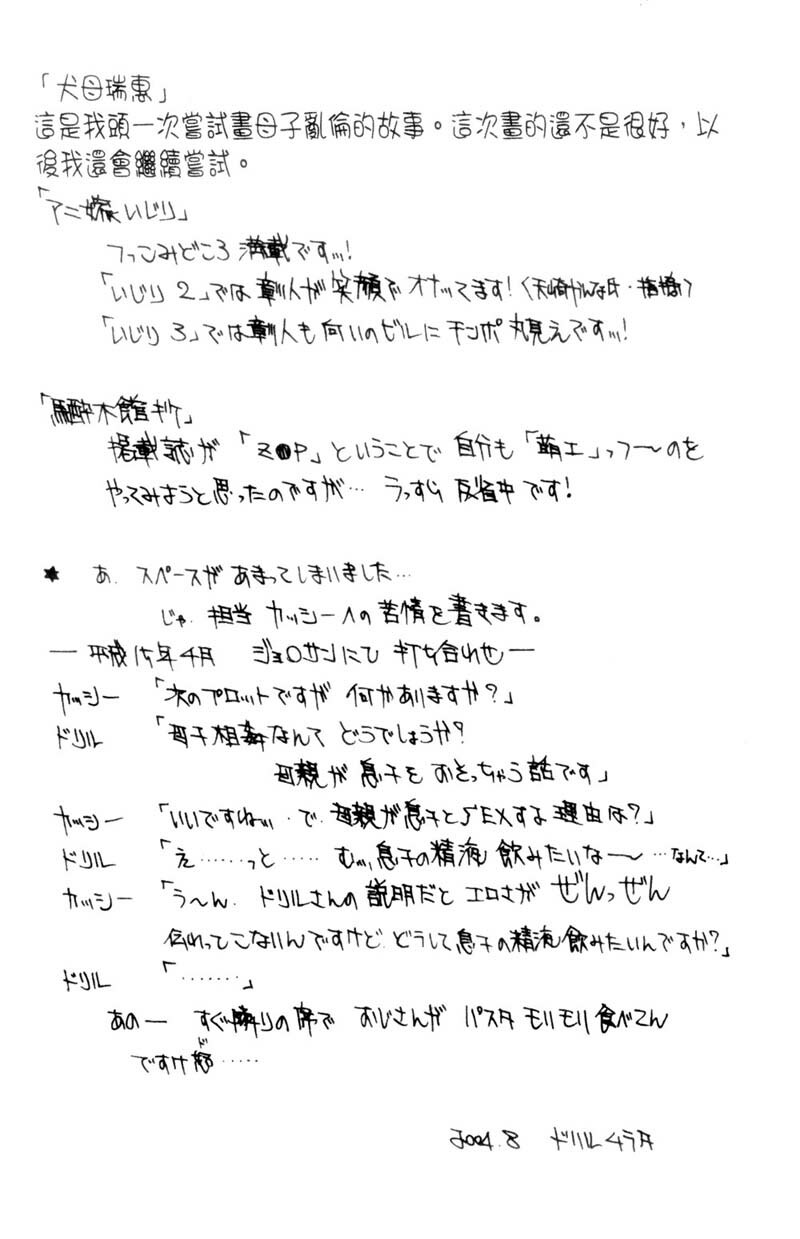 「犬母瑞惠」
這是我頭一次嘗試畫母子亂倫的故事。這次畫的還不是很好，以
後我還會繼續嘗試。
「アニ嫁いじり」
つっこみどころ満載ですッ!
「いじり2」では彰人が笑顔でオナッてます!
「いじり3」では彰人も向いのビルにチンポ丸見えですッ!
「馬酔木館
掲載誌が「Z●P」ということで自分も「萌エ」っつ〜のを
やってみようと思ったのですが… うっすら反省中です!
★ あ、スペースがあまってしまいました…
じゃ、担当カッシーへの苦情を書きます。
― 平成15年4月 ジョ○サンにて打ち合わせ ―
カッシー 「次のプロットですが何かありますか?」
ドリル 「母子相姦なんてどうでしょうか?
母親が息子をおそっちゃう話です」
カッシー 「いいですねッ、で、母親が息子とSEXする理由は?」
ドリル 「え……っと…… むッ、息子の精液飲みたいな〜 …なんて…」
カッシー 「う〜ん、ドリルさんの説明だとエロさがぜんっぜん
伝わってこないんですけど、どうして息子の精液飲みたいんですか?」
ドリル 「.......」
あの― すぐ隣りの席でおじさんがパスタモリモリ食べてん
ですけど……
2004.8 ドリルムラタ